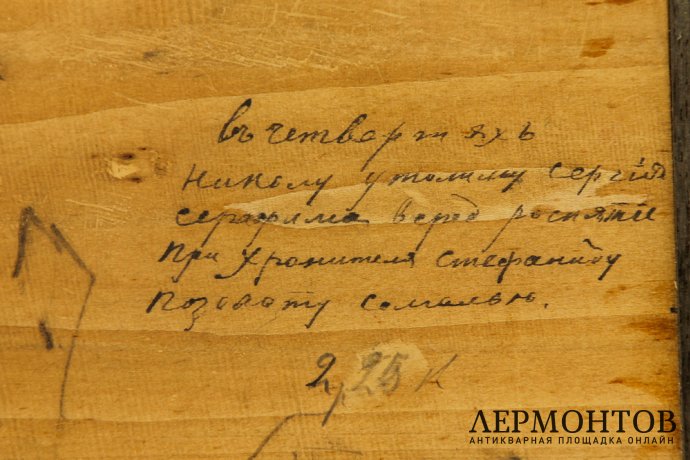 въ четвертяхъ
Николу утолиму Сергія
серафима веред роспятие
при хронителя стефаниду
позолоту с емалью.
2,25 к
ЛЕРМОНТОВ
АНТИКВАРНАЯ ПЛОЩАДКА ОНЛАЙН